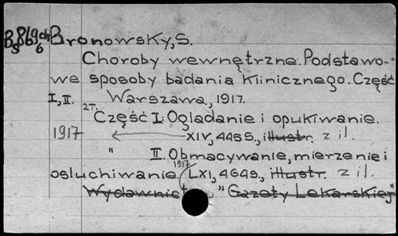 B 869ch Bronowsky, S.
6
Choroby wewnętrzne. Podstawo-
we sposoby badania klinicznego. Część
I, II. Warszawa, 1917.
2T.
Część I: Oglądanie i opukiwanie.
1917 XIV, 445 S., illustr. z il.
" II. Obmacywanie, mierzenie i
1917
osłuchiwanie. LXI, 464 S., illustr. z il.
Wydawnict "Gazety Lekarskiej"